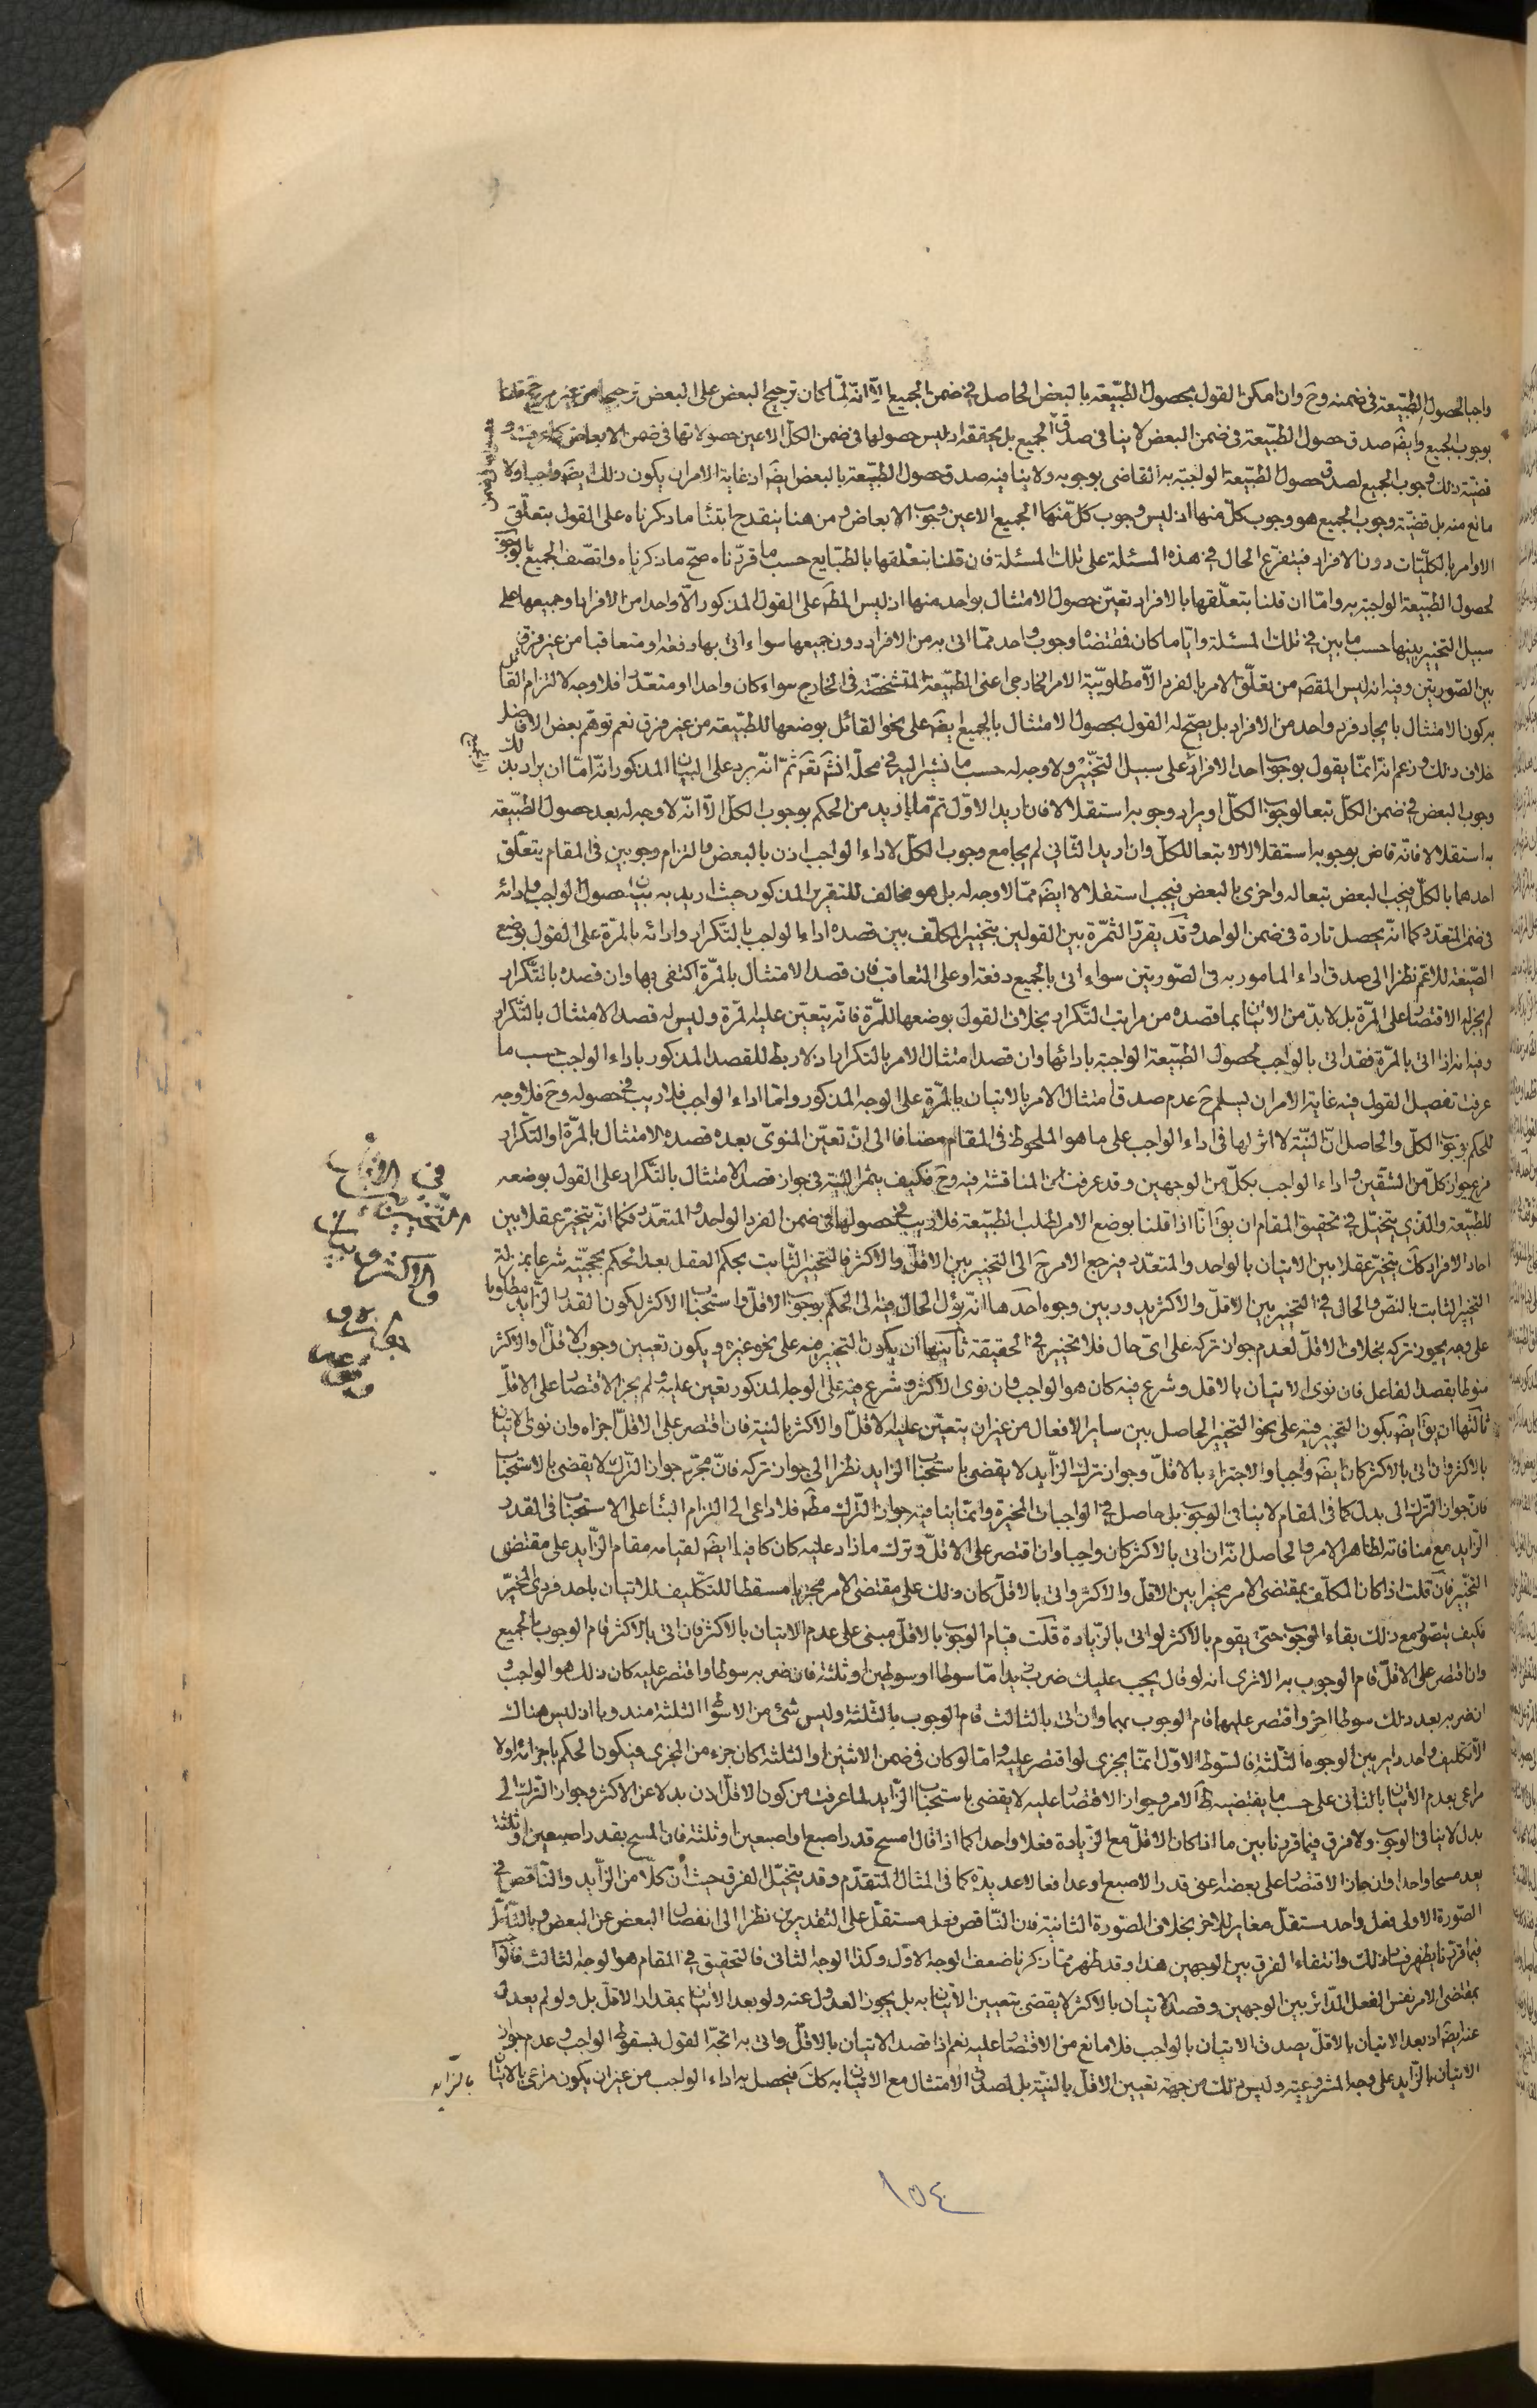 واجبا لحصول الطبيعة في ضمنه وح وان امكن القول بحصول الطبيعة بالبعض الحاصل في ضمن الجميع الا انه لما كان ترجيح البعض على البعض ترجيحا من غير مرجح قلنا
بوجوب الجميع وايضا صدق حصول الطبيعة في ضمن البعض لا ينافي صدق الجميع بل يحققه اذ ليس حصولها في ضمن الكل الا عين حصولاتها في ضمن الابعاض كما عرفت و
قضية ذلك وجوب الجميع لصدق حصول الطبيعة الواجبة به القاضي بوجوبه ولا ينافيه صدق حصول الطبيعة بالبعض ايضا اذ غاية الامر ان يكون ذلك ايضا واجبا ولا
مانع منه بل قضية وجوب الجميع هو وجوب كل منها اذ ليس وجوب كل منها الجميع الا عين وجوب الابعاض ومن هنا ينقدح ابتناء ما ذكرناه على القول بتعلق
الاوامر بالكليات دون الافراد فيتفرع الحال في هذه المسئلة على تلك المسئلة فان قلنا بتعلقها بالطبايع حسب ما قررناه صح ما ذكرناه واتصف الجميع بالوجوب
لحصول الطبيعة الواجبة به واما ان قلنا بتعلقها بالافراد تعين حصول الامتثال بواحد منها اذ ليس المط على القول المذكور الا واحدا من الافراد او جميعها على
سبيل التخيير بينها حسب ما بين في تلك المسئلة وايا ما كان فقتضاه وجوب واحد مما اتى به من الافراد دون جميعها سواء اتى بها دفعة او متعاقبا من غير فرق
بين الصورتين وفيه انه ليس المقص من تعلق الامر بالفرد الا مطلوبية الامر الخارجي اعنى الطبيعة المتشخصة في الخارج سواء كان واحدا او متعددا فلا وجه لالتزام القائل
به كون الامتثال بايجاد فرد واحد من الافراد بل يصح له القول بحصول الامتثال بالجميع ايضا على نحو القائل بوضعها للطبيعة من غير فرق نعم توهم بعض الافاضل
خلاف ذلك وزعم انه انما يقول بوجوب احد الافراد على سبيل التخيير ولا وجه له حسب ما نشير اليه في محله انش تعم ثم انه يرد على البيان المذكور انه اما ان يراد بذلك
وجوب البعض في ضمن الكل تبعا لوجوب الكل او يراد وجوبه استقلالا فان اريد الاول تم ما اريد من الحكم بوجوب الكل الا انه لا وجه له بعد حصول الطبيعة
به استقلالا فانه قاض بوجوبه استقلالا لا تبعا للكل وان اريد الثاني لم يجامع وجوب الكل لاداء الواجب اذن بالبعض والتزام وجوبين في المقام يتعلق
احدهما بالكل فيجب البعض تبعا له واخرى بالبعض فيجب استقلالا ايضا مما لا وجه له بل هو مخالف للتقرير المذكور حيث اريد به بيان حصول الواجب وادائه
في ضمن المتعدد كما انه يحصل تارة في ضمن الواحد وقد يقرر الثمرة بين القولين بتخيير المكلف بين قصده اداء الواجب بالتكرار وادائه بالمرة على القول بوضع
الصيغة للاعم نظرا الى صدق اداء المامور به في الصورتين سواء اتى بالجميع دفعة او على المتعاقب فان قصد الامتثال بالمرة اكتفى بها وان قصده بالتكرار
لم يجز له الاقتصار على المرة بل لا بد من الاتيان بما قصده من مراتب التكرار بخلاف القول بوضعها للمرة فانه يتعين عليه المرة وليس له قصد الامتثال بالتكرار
وفيه انه اذا اتى بالمرة فقد اتى بالواجب لحصول الطبيعة الواجبة بادائها وان قصد امتثال الامر بالتكرار اذ لا ربط للقصد المذكور باداء الواجب حسب ما
عرفت تفصيل القول فيه غاية الامر ان يسلم ح عدم صدق امتثال الامر بالاتيان بالمرة على الوجه المذكور واما اداء الواجب فلا ريب في حصوله وح فلا وجه
للحكم بوجوب الكل والحاصل ان النية لا اثر لها في اداء الواجب على ما هو الملحوظ في المقام مضافا الى ان تعين المنوي بعده قصده الامتثال بالمرة او التكرار
فرع جواز كل من الشقين واداء الواجب بكل من الوجهين وقد عرفت ان المناقشة فيه وح فكيف يثمر النية في جواز قصد الامتثال بالتكرار على القول بوضعه
للطبيعة والذي يتخيل في تحقيق المقام ان يق انا اذا قلنا بوضع الامر لطلب الطبيعة فلا ريب في حصولها في ضمن الفرد الواحد والمتعدد فكما انه يتخير عقلا بين
احاد الافراد كك يتخير عقلا بين الاتيان بالواحد والمتعدد فيرجع الامر ح الى التخيير بين الاقل والاكثر فالتخيير الثابت بحكم العقل بعد الحكم بحجيته شرعا بمنزلة
التخيير الثابت بالنص والحال في التخيير بين الاقل والاكثر يدور بين وجوه احدها انه يؤل الحال فيه الى الحكم بوجوب الاقل واستحباب الاكثر لكون القدر الزايد مطلوبا
على وجه يجوز تركه بخلاف الاقل لعدم جواز تركه على اى حال فلا تخيير في الحقيقة ثانيها ان يكون التخيير فيه على نحو غيره ويكون تعيين وجوب الاقل والاكثر
منوطا بقصد الفاعل فان نوى الاتيان بالاقل وشرع فيه كان هو الواجب وان نوى الاكثر وشرع فيه على الوجه المذكور تعين عليه ولم يجز الاقتصار على الاقل
ثالثها ان يق ايضا بكون التخيير فيه على نحو التخيير الحاصل بين ساير الافعال من غير ان يتعين عليه الاقل والاكثر بالنية فان اقتصر على الاقل اجزاه وان نوى الاتيان
بالاكثر وان اتى بالاكثر كان ايضا واجبا والاجتزاء بالاقل وجواز ترك الزايد لا يقضى باستحباب الزايد نظرا الى جواز تركه فان مجرد جواز الترك لا يقضى بالاستحباب
فان جواز الترك الى بدل كما في المقام لا ينافي الوجوب بل حاصل في الواجبات المخيرة وانما ينافيه جواز الترك مط فلا داعى الى التزام البناء على الاستحباب في القدر
الزايد مع منافاته لظاهر الامر والحاصل انه ان اتى بالاكثر كان واجبا وان اقتصر على الاقل وترك ما زاد عليه كان كافيا ايضا لقيامه مقام الزايد على مقتضى
التخيير فان قلت اذا كان المكلف بمقتضى الامر مخيرا بين الاقل والاكثر واتى بالاقل كان ذلك على مقتضى الامر مجزيا مسقطا للتكليف للاتيان باحد فردى المخير
فكيف يتصور مع ذلك بقاء الوجوب حتى يقوم بالاكثر لو اتى بالزيادة قلت قيام الوجوب بالاقل مبنى على عدم الاتيان بالاكثر فان اتى بالاكثر قام الوجوب بالجميع
وان اقتصر على الاقل قام الوجوب به الا ترى انه لو قال يجب عليك ضرب زيد اما سوطا او سوطين او ثلثة فان ضربه سوطا واقتصر عليه كان ذلك هو الواجب و
ان ضربه بعد ذلك سوطا اخر واقتصر عليهما قام الوجوب بهما وان اتى بالثالث قام الوجوب بالثلثة وليس شئ من الاسواط الثلثة مندوبا اذ ليس هناك
الا تكليف واحد داير بين الوجوه الثلثة فالسوط الاول انما يجزى لو اقتصر عليه واما لو كان في ضمن الاثنين او الثلثة كان جزء من المجزى فيكون الحكم باجزائه اولا
مراعى بعدم الاتيان بالثانى على حسب ما يقتضيه ظ الامر وجواز الاقتصار عليه لا يقضى باستحباب الزايد لما عرفت من كون الاقل اذن بدلا عن الاكثر وجواز الترك الى
بدل لا ينافي الوجوب ولا فرق فيما قررنا بين ما اذا كان الاقل مع الزيادة فعلا واحدا كما اذا قال امسح قدر اصبع او اصبعين او ثلثة فان المسح بقدر اصبعين او ثلثة
يعد مسحا واحدا وان جاز الاقتصار على بعضه اعنى قدر الاصبع او عد افعالا عديدة كما في المثال المتقدم وقد يتخيل الفرق حيث ان كلا من الزايد والناقص في
الصورة الاولى فعل واحد مستقل مغاير للاخر بخلاف الصورة الثانية فان الناقص فعل مستقل على التقديرين نظرا الى انفصال البعض عن البعض وبالتأمل
فيما قررنا يظهر فساد ذلك وانتفاء الفرق بين الوجهين هذا وقد ظهر مما ذكرنا ضعف الوجه الاول وكذا الوجه الثانى فالتحقيق في المقام هو الوجه الثالث فالواجب
بمقتضى الامر نفس الفعل الدائر بين الوجهين وقصد الاتيان بالاكثر لا يقضى بتعيين الاتيان به بل يجوز العدول عنه ولو بعد الاتيان بمقدار الاقل بل ولو لم يعدل
عنه ايضا اذ بعد الاتيان بالاقل يصدق الاتيان بالواجب فلا مانع من الاقتصار عليه نعم اذا قصد الاتيان بالاقل واتى به اتجه القول بسقوط الواجب وعدم جواز
الاتيان بالزايد على وجه المشروعية وليس ذلك من جهة تعيين الاقل بالنية بل لصدق الامتثال مع الاتيان به كك فيحصل به اداء الواجب من غير ان يكون مراعى بالاتيان
بالزايد
في
التخيير بين
والاكثر
١٥٤